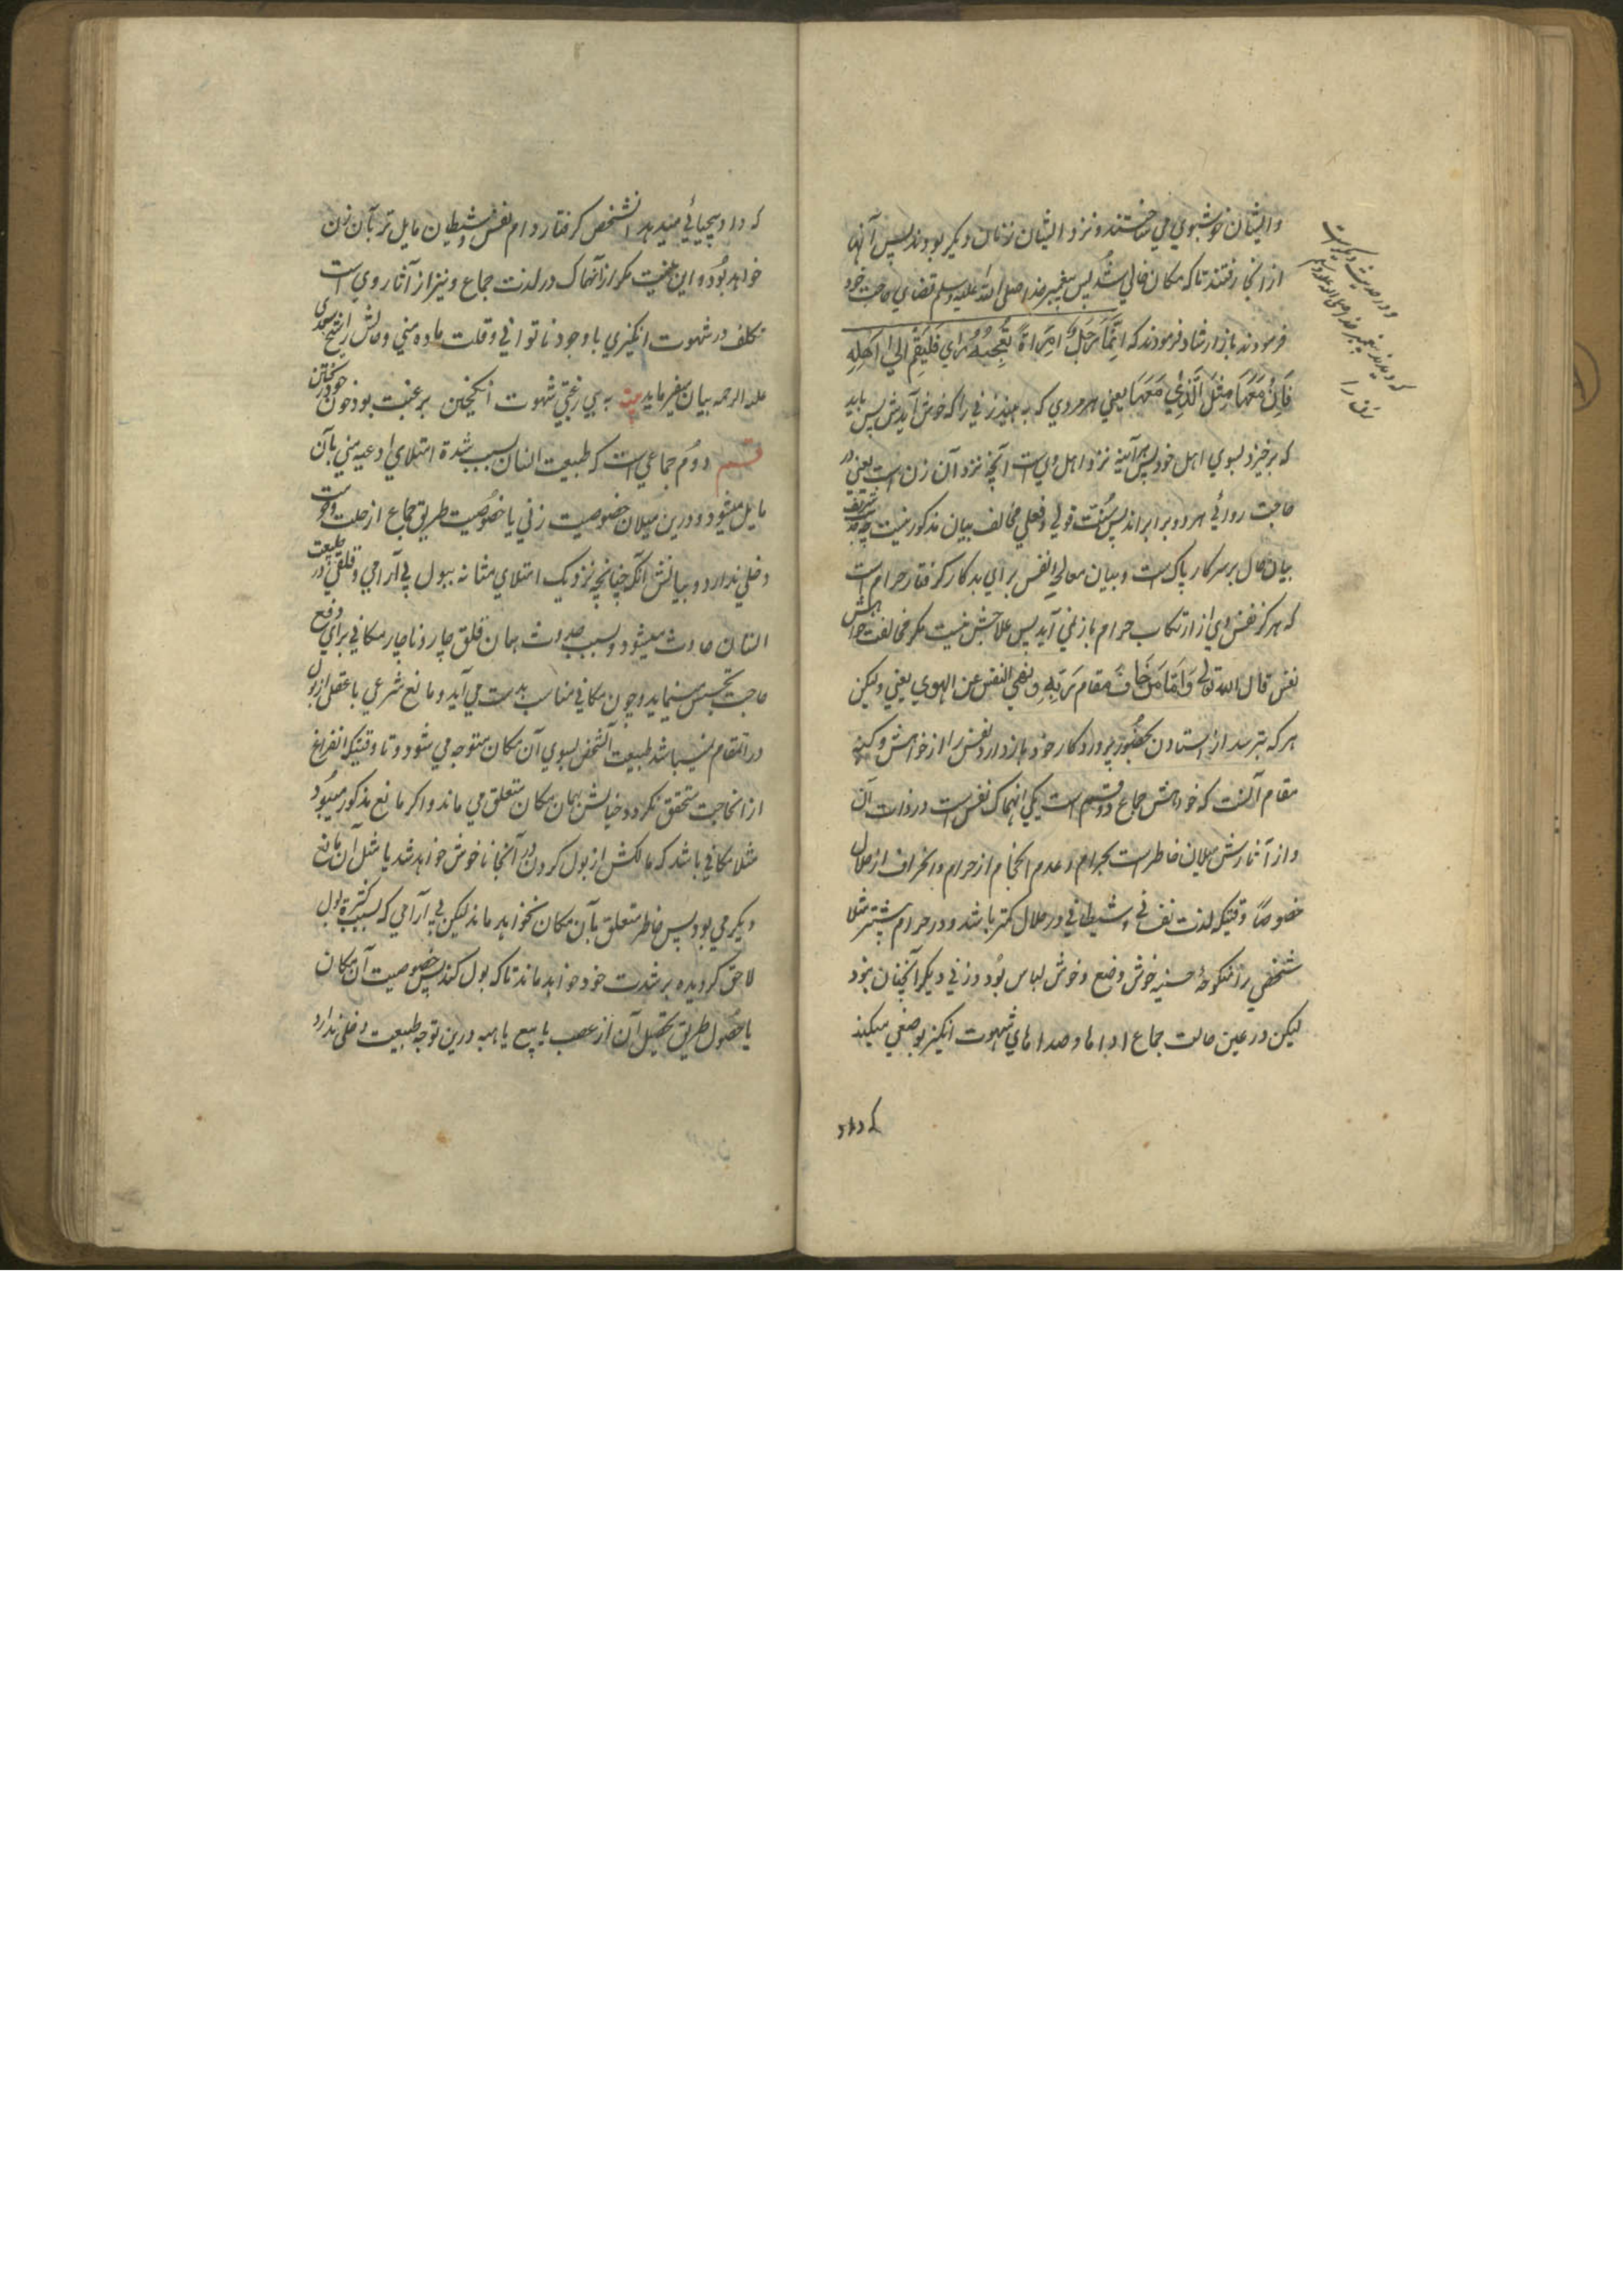 وایشان خوشبوی می ساختند و نزد ایشان زنان دیگر بودند پس آنها
ازانجا رفتند تا که مکان خالی شد پس پیغمبر خدا صلی الله علیه وسلم قضای حاجت خود
فرمودند باز ارشاد فرمودند که اَیُّمَا رَجُلٍ رَأی اِمرَاَةً تُعجِبُهُ فَلیَقُم اِلیٰ اَهلِهِ
فَاِنَّ مَعَهَا مِثلَ الَّذِی مَعَهَا یعنی هر مردی که به بیند زنی را که خوش آیدش پس باید
که برخیزد بسوی اهل خود پس هرآینه نزد اهل وی است آنچه نزد آن زن است یعنی در
حاجت روائی هر دو برابراند پس سنت قولی و فعلی مخالف بیان مذکور نیست چه
بیان حال بر سر کار پاک است و بیان معالجه نفس برای بدکار گرفتار حرام است
که هرگز نفس وی از ارتکاب حرام باز نمی آید پس علاجش نیست مگر مخالفت خواهش
نفس قال الله تعالی وَاَمَّا مَن خَافَ مَقَامَ رَبِّهِ وَنَهَی النفس عن الهوی یعنی ولیکن
هر که بترسد از استادن بحضور پروردگار خود و بازدارد نفس را از خواهش وکینه
مقام آنست که خواهش جماع دو قسم است یکی انهماک نفس است در ذات آن
و از آثارش میلان خاطر است بحرام و عدم انحام از حرام و انحراف از حلال
خصوصاً وقتیکه لذت نفسانی و شیطانی در حلال کمتر باشد و در حرام بیشتر مثلا
شخصی را منکوحهٔ حسنیه خوش وضع و خوش لباس بود و زنی دیگر آنچنان نبود
لیکن در عین حالت جماع اداها و صداهای شهوت انگیز بوضعی میکند
که داد
و در حدیث دیگر است
که دیدند پیغمبر خدا صلی الله علیه وسلم
زنی را
که داد بیحیائی میدهد آنشخص گرفتار دام نفس و شیطان مایل تر بآن زن
خواهد بود و این نیست مگر از انهماک در لذت جماع و نیز از آثار وی است
تکلف در شهوت انگیزی با وجود ناتوانی و قلت ماده منی و حالش را شیخ سعدی
علیه الرحمه بیان میفرماید بیت به بی رغبتی شهوت انگیختن برغبت بود خون خود ریختن
قسم دوم جماعی است که طبیعت انسان بسبب شدة امتلای اوعیه منی بآن
مایل میشود و درین میلان خصوصیت زنی یا خصوصیت طریق جماع از حلت و حرمت
دخلی ندارد و بیانش آنکه چنانچه نزدیک امتلای مثانه ببول بی آرامی و قلقی در طبیعت
انسان حادث میشود و بسبب حدوث همان قلق چار و ناچار مکانی برای دفع
حاجت تجسس مینماید و چون مکانی مناسب بدست می آید و مانع شرعی یا عقلی از بول
در آنمقام نمیباشد طبیعت آنشخص بسوی آن مکان متوجه می شود و تا وقتیکه انفراغ
از آنحاجت متحقق نگردد خیالش بهمان مکان متعلق می ماند و اگر مانع مذکور میبود
مثلا مکانی باشد که مالکش از بول کردن در آنجا ناخوش خواهد شد یا مثل آن مانع
دیگر می بود پس خاطر متعلق بآن مکان نخواهد ماند لیکن بی آرامی که بسبب کثرة بول
لاحق گردیده بر شدت خود خواهد ماند تا که بول کند پس خصوصیت آن مکان
یا حصول طریق تحصیل آن از غصب یا بیع یا هبه درین توجه طبیعت دخلی ندارد